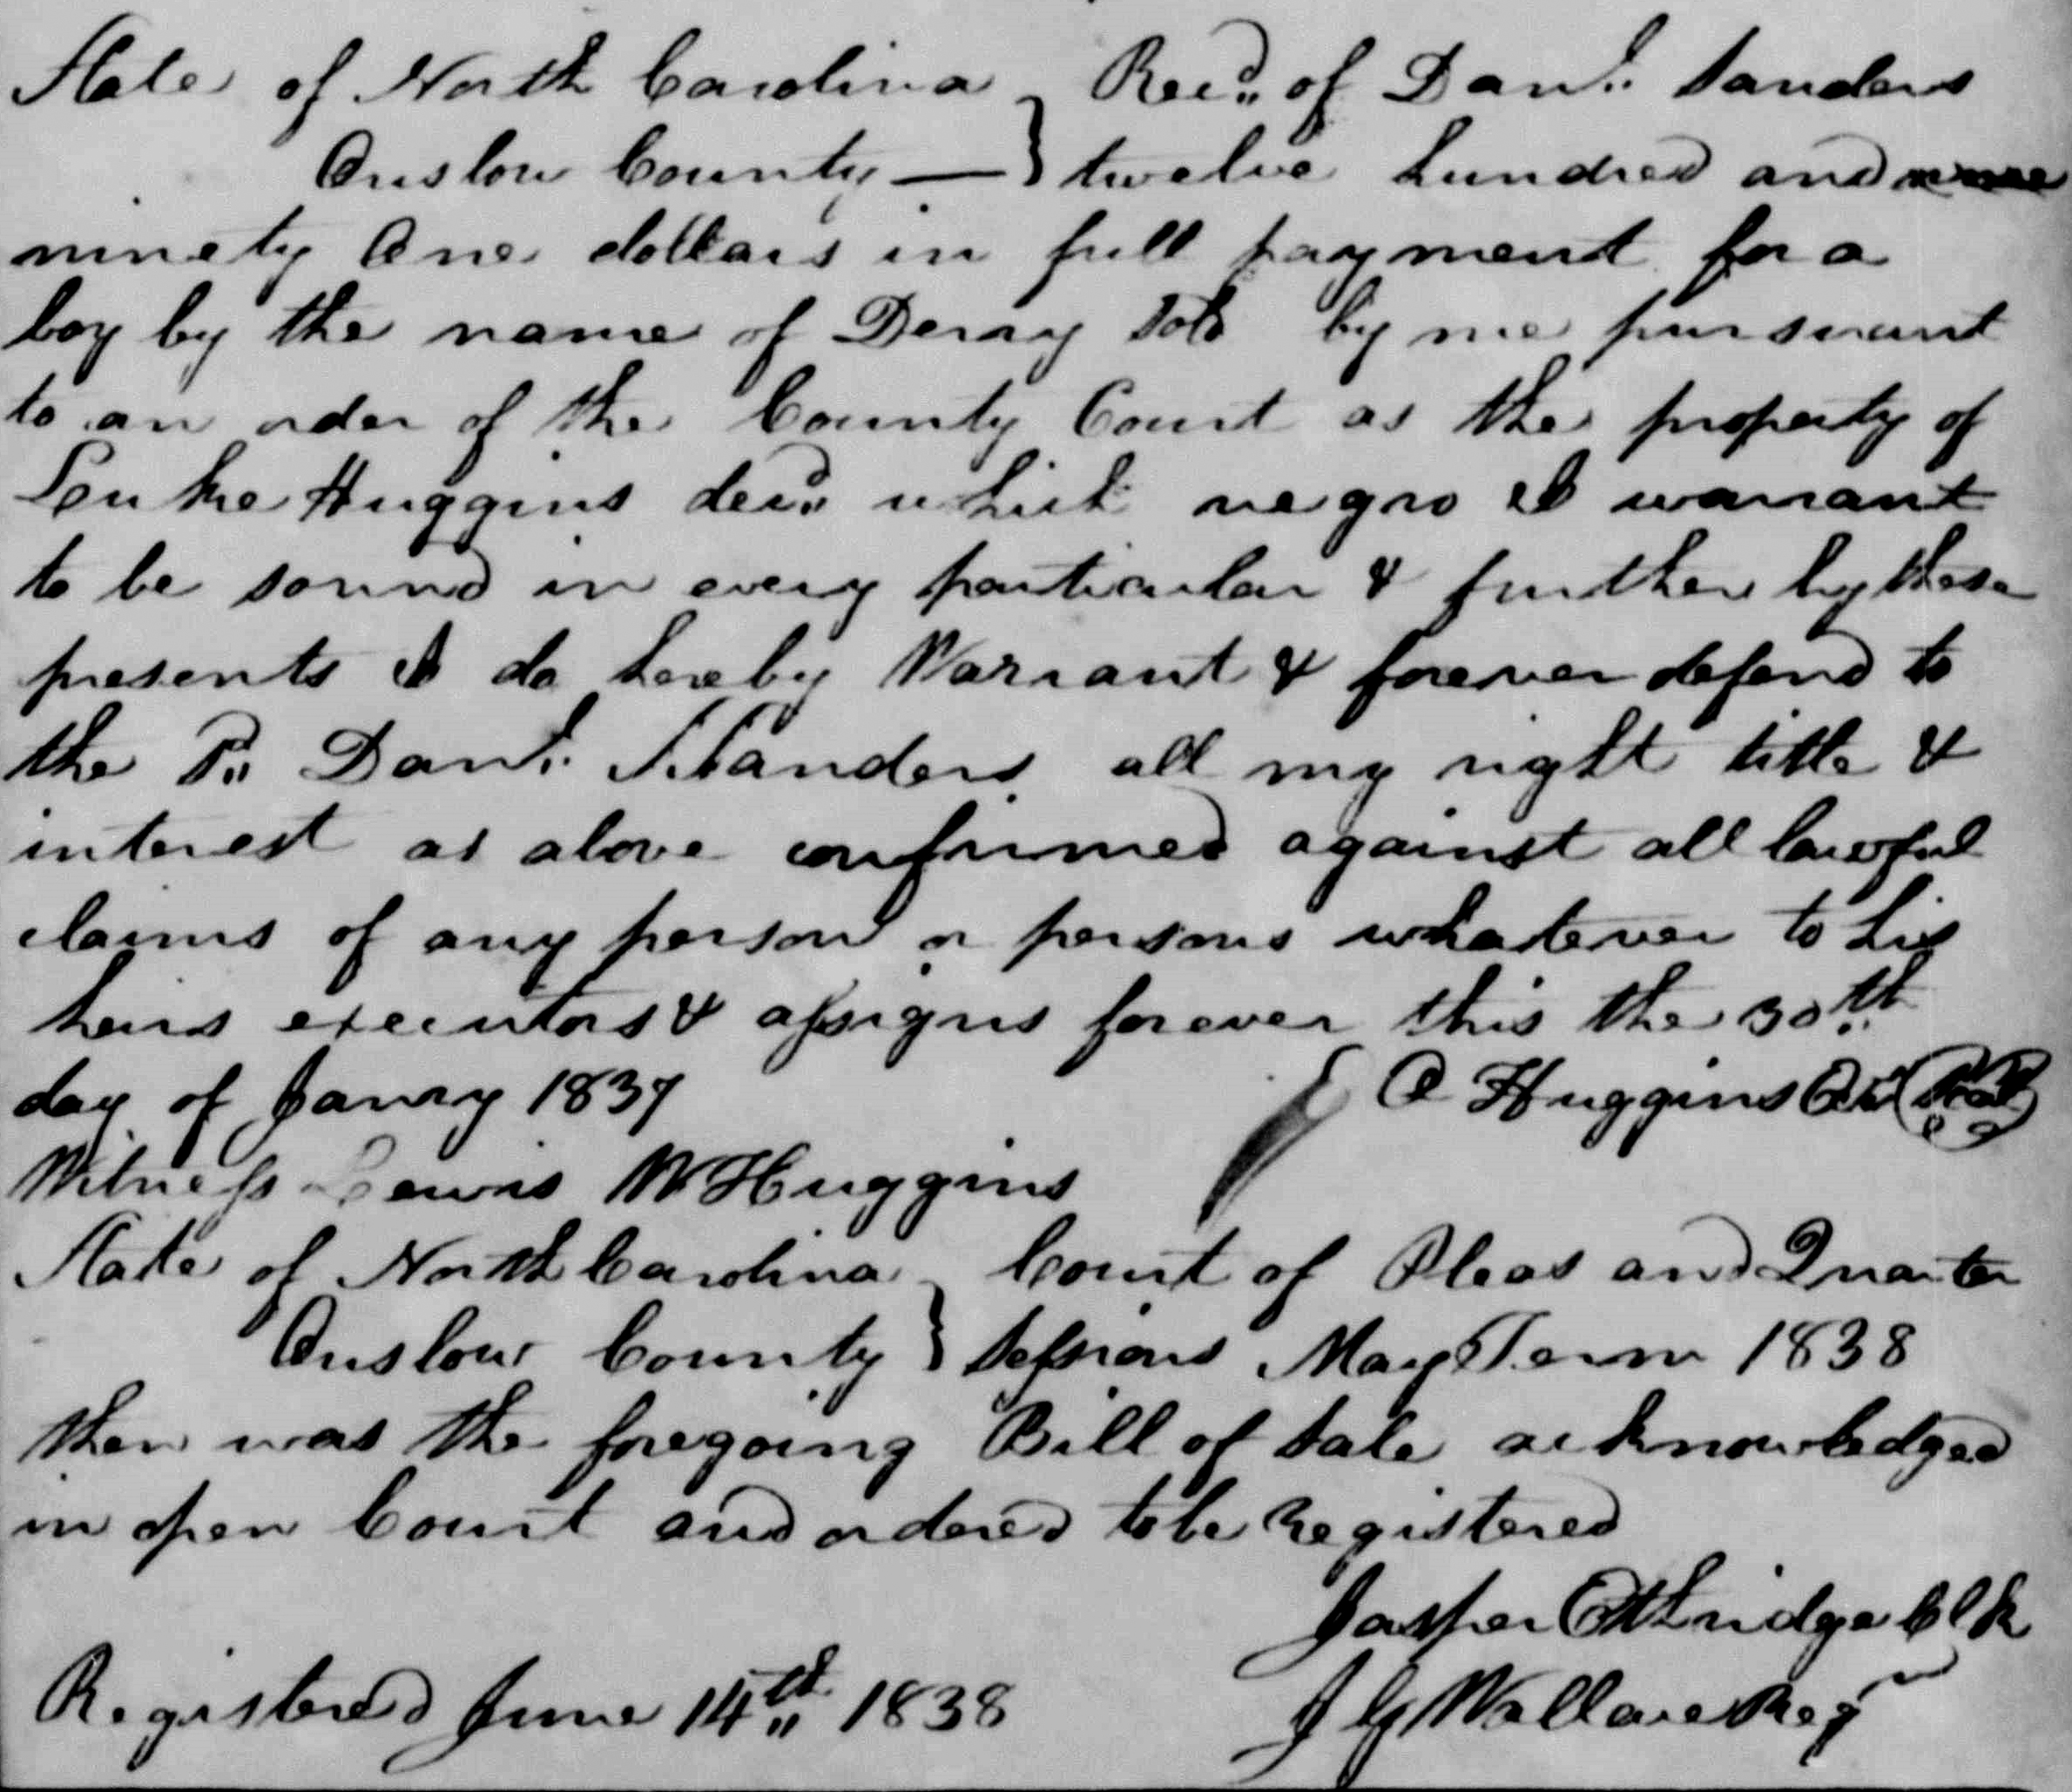 State of North Carolina } Recd. of Danl. Sanders
Onslow County — } twelve hundred and
ninety One dollars in full payment for a
boy by the name of Derry Sold by me pursuant
to an order of the County Court as the property of
Huggins decd. which negro I warrant
to be sound in every particular & further by these
presents I do hereby Warrant & forever defend to
the Danl. Sanders all my right title &
interest as above confirmed against all lawful
claims of any person or persons whatever to his
heirs executors & assigns forever this the 30th
day of Janry 1837 { Huggins (Seal)
Witness Lewis W Huggins
State of North Carolina } Court of Pleas and Quarter
Onslow County } Sessions May Term 1838
then was the foregoing Bill of Sale acknowledged
in open Court and ordered to be Registered
Jasper Ethridge Clk
Registered June 14th 1838 J G Wallace Regr